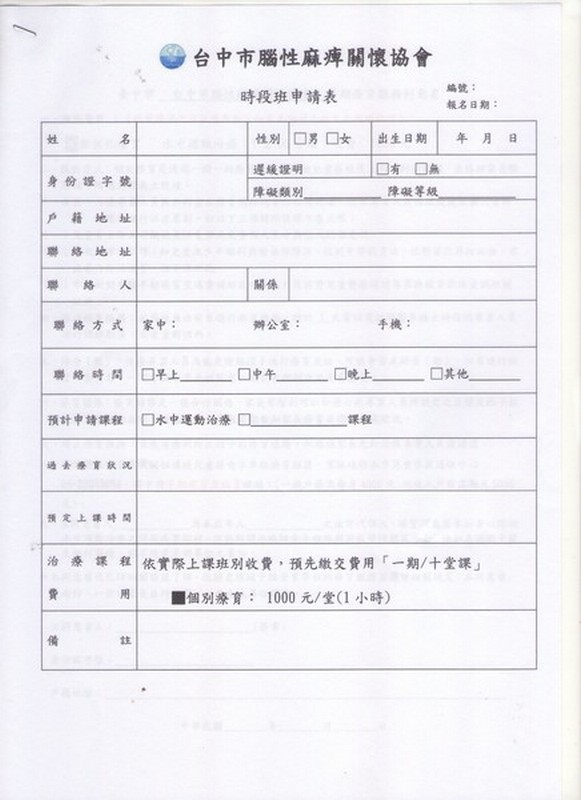 台中市腦性麻痺關懷協會
時段班申請表
編號：
報名日期：
姓名 性別 □男 □女 出生日期 年 月 日
身份證字號 遲緩證明 □有 □無
障礙類別 障礙等級
戶籍地址
聯絡地址
聯絡人 關係
聯絡方式 家中： 辦公室： 手機：
聯絡時間 □早上 □中午 □晚上 □其他
預計申請課程 □水中運動治療 □ 課程
過去療育狀況
預定上課時間
治療課程費用 依實際上課班別收費，預先繳交費用「一期/十堂課」
■個別療育： 1000 元/堂(1 小時)
備註